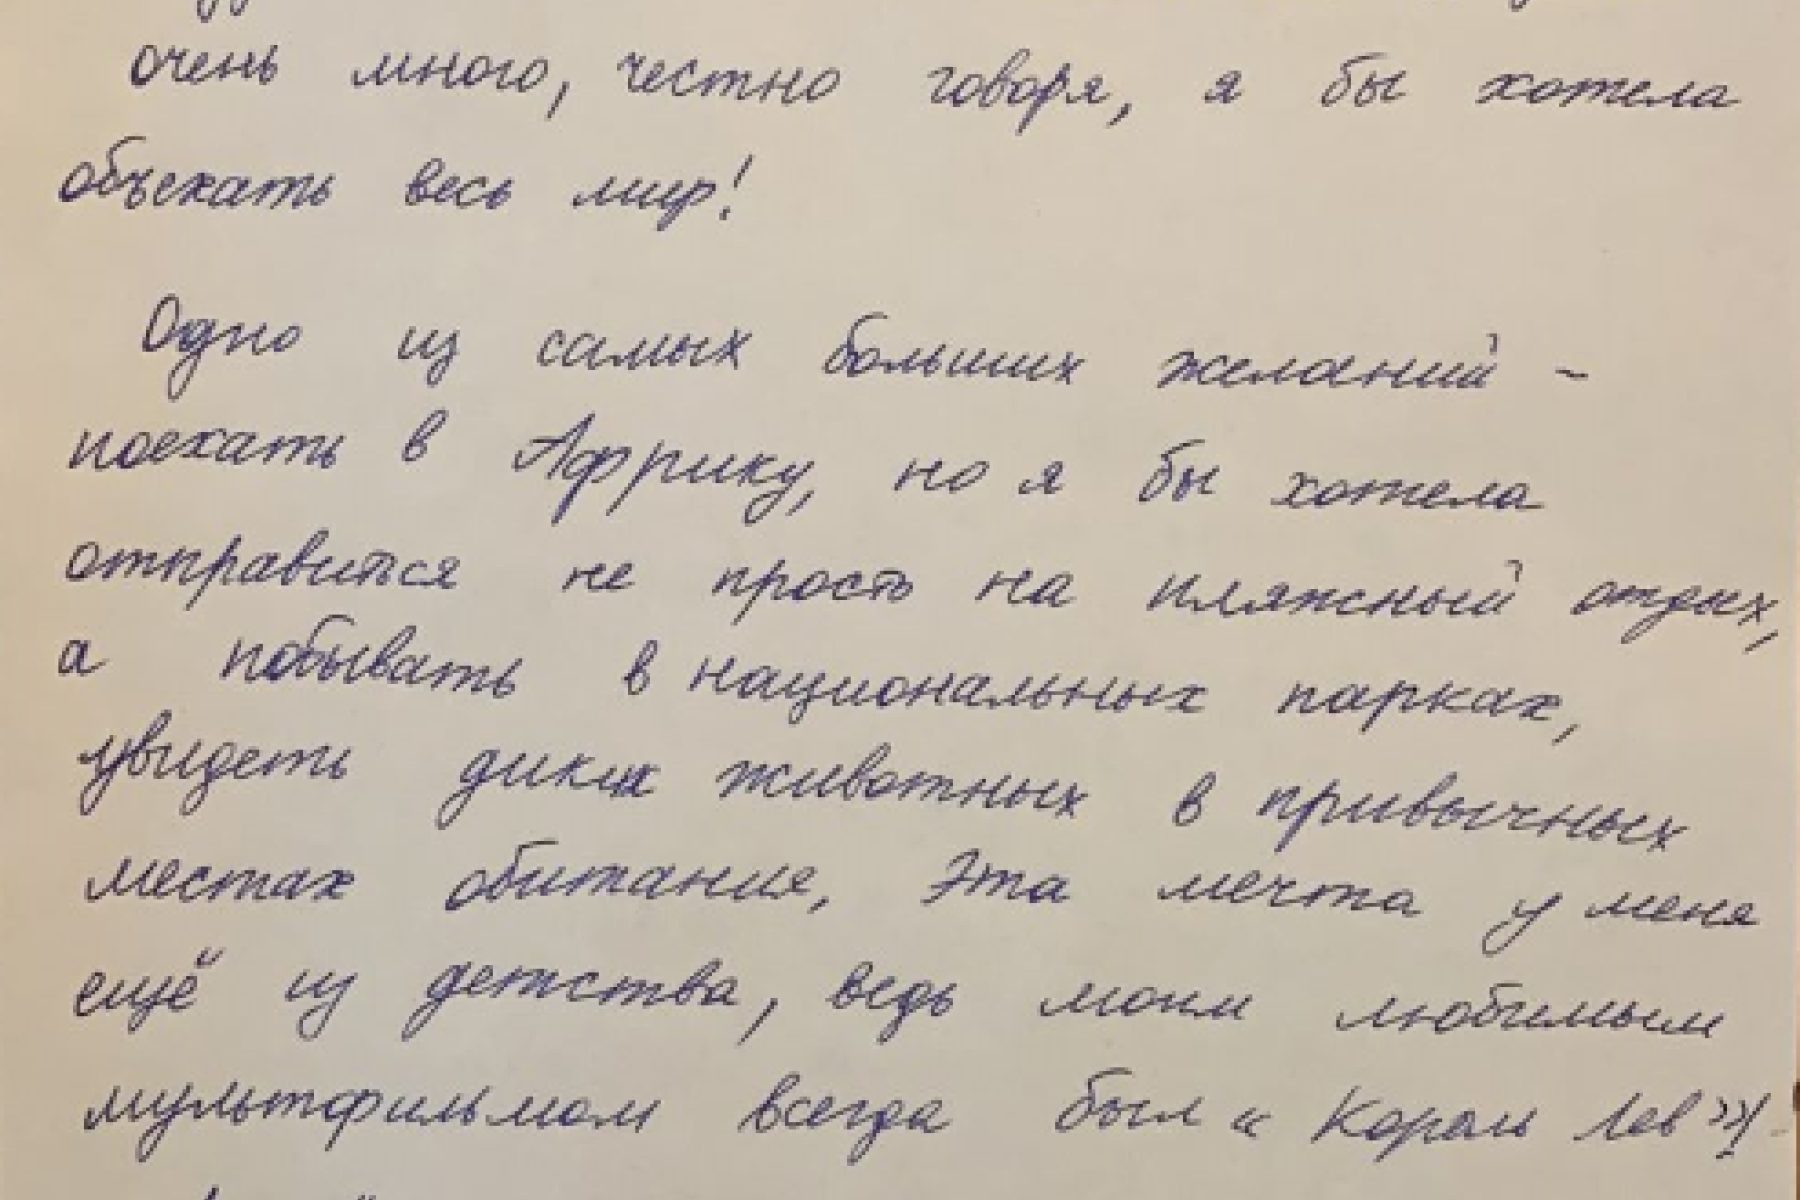 очень много, честно говоря, я бы хотела
объехать весь мир!
Одно из самых больших желаний -
поехать в Африку, но я бы хотела
отправиться не просто на пляжный отдых,
а побывать в национальных парках,
увидеть диких животных в привычных
местах обитание, Эта мечта у меня
ещё из детства, ведь моим любимым
мультфильмом всегда был « Король Лев»!